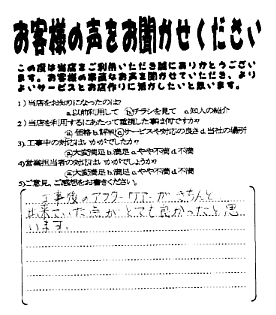 お客様の声をお聞かせください
この度は当店をご利用いただき誠にありがとうござい
ます。お客様の率直なお声を聞かせていただき、より
よいサービスとお店作りに活かしたいと思います。
1)当店をお知りになったのは?
a.以前利用して ⓑチラシを見て c.知人の紹介
2)当店を利用するにあたって重視した事は何ですか?
a.価格 b.評判 ⓒサービスや対応の良さ d.当社の場所
3)工事中の対応はいかがでしたか?
ⓐ大変満足 b.満足 c.やや不満 d.不満
4)営業担当者の対応はいかがでしょうか?
ⓐ大変満足 b.満足 c.やや不満 d.不満
5)ご意見、ご感想をお書きください。
工事後のアフターケアーがきちんと
出来ていた点がとても良かったと思
います。